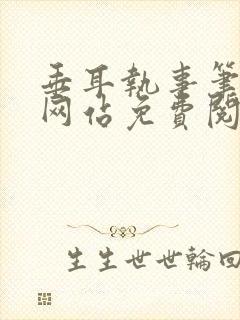 垂耳執事筆
网佔免費閱
生生世世輪回